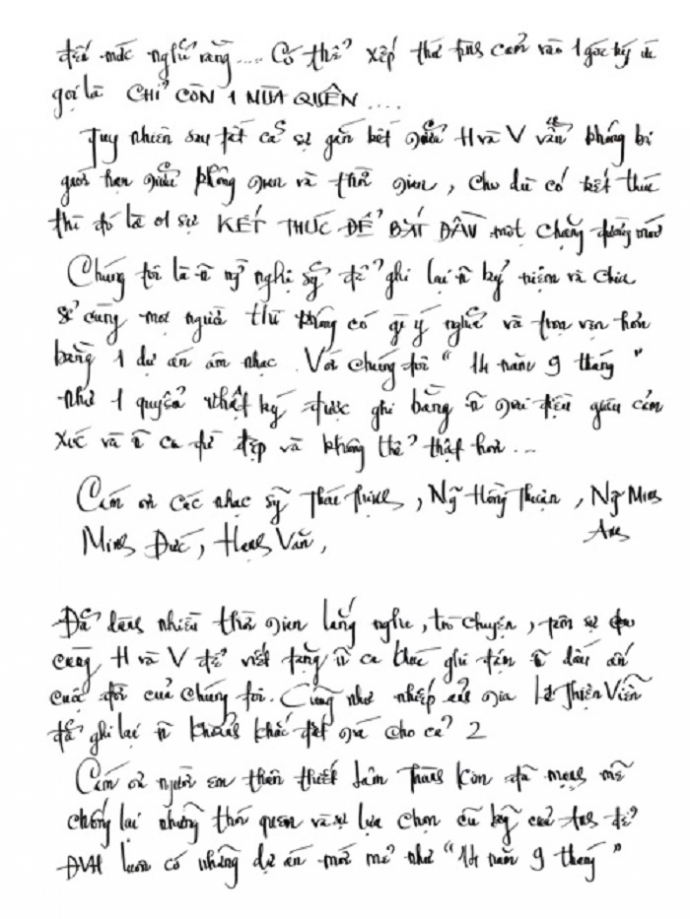 đến mức nghĩ rằng.... Có thể xếp thứ tình cảm vào 1 góc ký ức
gọi là CHỈ CÒN 1 NỬA QUÊN ....
Tuy nhiên sau tất cả sự gắn kết giữa H và V vẫn không bị
giới hạn giữa không gian và thời gian, cho dù có kết thúc
thì đó là 01 sự KẾT THÚC ĐỂ BẮT ĐẦU một chặng đường mới
Chúng tôi là n~ ng~ nghệ sỹ để ghi lại n~ kỷ niệm và chia
sẻ cùng mọi người thì không có gì ý nghĩa và trọn vẹn hơn
bằng 1 dự án âm nhạc. Với chúng tôi "14 năm 9 tháng"
như 1 quyển nhật ký được ghi bằng n~ giai điệu giàu cảm
xúc và n~ ca từ đẹp và không thể thật hơn ...
Cám ơn các nhạc sỹ Thái Thịnh, Ng~ Hồng Thuận, Ng~ Minh
Minh Đức, Hoàng Văn, Anh
Đã dành nhiều thời gian lắng nghe, trò chuyện,
cùng H và V để viết tặng n~ ca khúc ghi n~ dấu ấn
cuộc đời của chúng tôi. Cũng như nhiếp ảnh gia Lê Thiện Viễn
đã ghi lại n~ khoảnh khắc đắt giá cho cả 2
Cám ơn người em thân thiết Lâm Thành Kôn đã mạnh mẽ
chống lại những thói quen và sự lựa chọn cũ kỹ của Anh để
ĐVH luôn có những dự án mới mẻ như "14 năm 9 tháng"